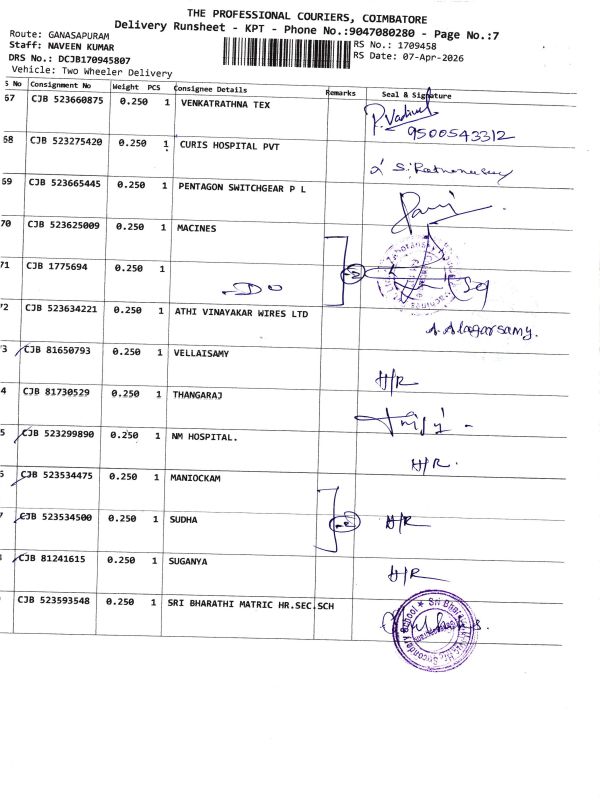 THE PROFESSIONAL COURIERS, COIMBATORE
Delivery Runsheet - KPT - Phone No.:9047080280 - Page No.:7
Route: GANASAPURAM
RS No.: 1709458
Staff: NAVEEN KUMAR
RS Date: 07-Apr-2026
DRS No.: DCJB170945807
Vehicle: Two Wheeler Delivery
S No Consignment No Weight PCS Consignee Details Remarks Seal & Signature
67 CJB 523660875 0.250 1 VENKATRATHNA TEX P.Vadivel
9500543312
68 CJB 523275420 0.250 1 CURIS HOSPITAL PVT
69 CJB 523665445 0.250 1 PENTAGON SWITCHGEAR P L
70 CJB 523625009 0.250 1 MACINES
71 CJB 1775694 0.250 1 -DO
72 CJB 523634221 0.250 1 ATHI VINAYAKAR WIRES LTD A.Alagarsamy.
3 CJB 81650793 0.250 1 VELLAISAMY H/R
4 CJB 81730529 0.250 1 THANGARAJ
5 CJB 523299890 0.250 1 NM HOSPITAL. H/R.
6 CJB 523534475 0.250 1 MANIOCKAM
7 CJB 523534500 0.250 1 SUDHA H/R
CJB 81241615 0.250 1 SUGANYA H/R
CJB 523593548 0.250 1 SRI BHARATHI MATRIC HR.SEC.SCH